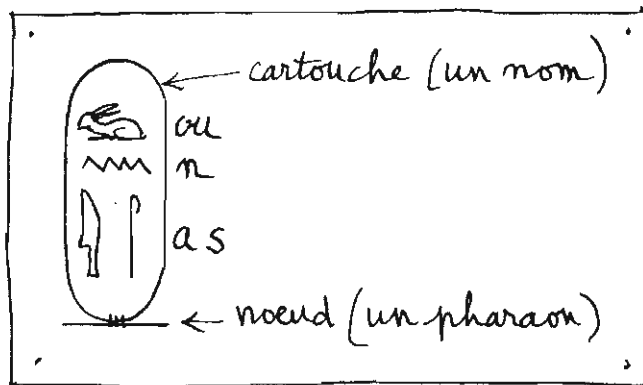 cartouche (un nom)
ou
n
as
noeud (un pharaon)